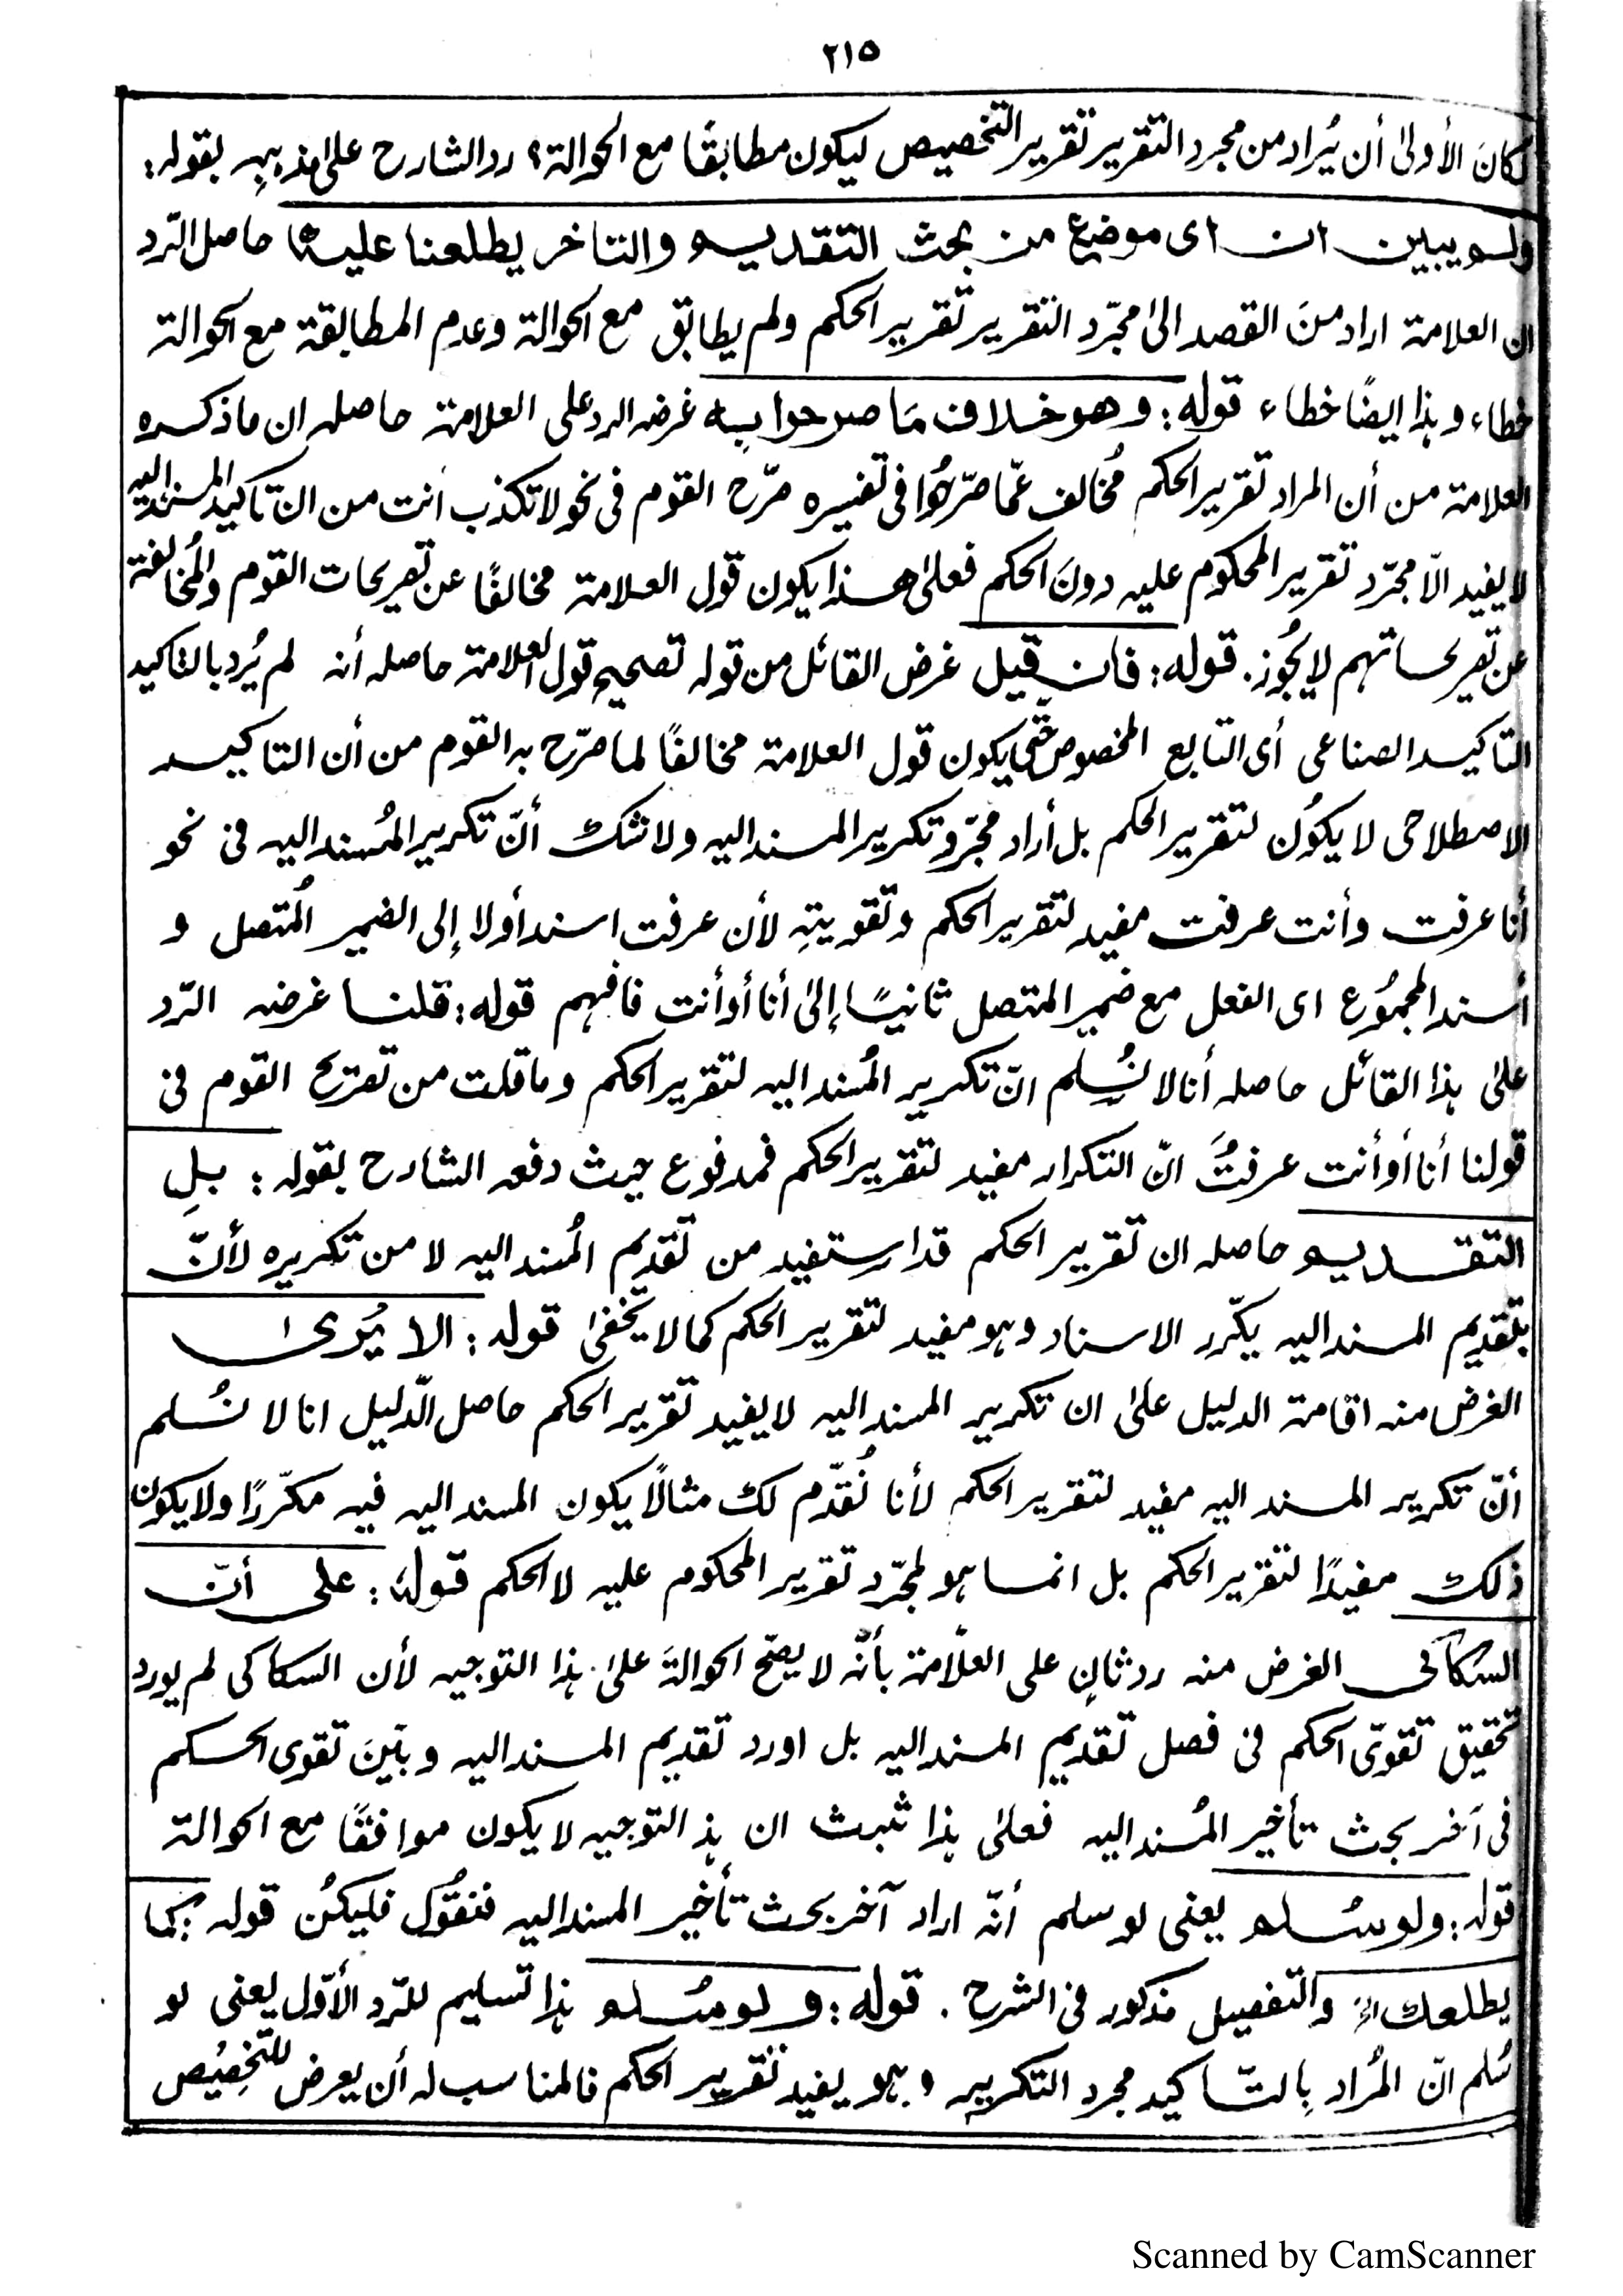 ٢١٥
لكانَ الأولىٰ أن يُراد من مجرد التقرير تقرير التخصيص ليكون مطابقًا مع الحوالة؛ رد الشارح علىٰ مذهبهِ بقوله:
ولم يبين ان اى موضع من بحث التقديم والتاخر يطلعنا عليه؛ حاصل الرّد
ان العلامة اراد منَ القصد الىٰ مجرّد التقرير تقرير الحكم ولم يطابق مع الحوالة وعدم المطابقة مع الحوالة
خطاء وهذا ايضًا خطاء قوله: وهو خلاف مَا صرحوا به غرضه الرد على العلامة حاصله ان ما ذكره
العلامة من أن المراد تقرير الحكم مُخالف عمّا صرّحُوا فى تفسيره صرّح القوم فى نحو لا تكذب انت من ان تاكيد المسند اليه
لا يفيد الّا مجرّد تقرير المحكوم عليه دونَ الحكم فعلىٰ هذا يكون قول العلامة مخالفًا عن تصريحات القوم والمُخالفة
عن تصريحاتهم لا يجُوز. قوله: فان قيل غرض القائل من قوله تصحيح قول العلامة حاصله أنه لم يُرد بالتاكيد
التاكيد الصناعى أى التابع المخصوص حتّى يكون قول العلامة مخالفًا لما صرّح به القوم من أن التاكيد
الاصطلاحى لا يكوُن لتقرير الحكم بل أراد مجرّد تكرير المسند اليه ولا شك أنّ تكرير المُسند اليه فى نحو
أنا عرفت وأنت عرفت مفيد لتقرير الحكم وتقويتهِ لأن عرفت اسند أولا إلى الضمير المُتصل و
أسند المجموُع اى الفعل مع ضمير المتصل ثانيًا إلىٰ أنا أو أنت فافهم قوله: قلنا غرضه الرّد
علىٰ هذا القائل حاصله أنا لا نُسلم انّ تكرير المُسند اليه لتقرير الحكم وما قلت من تصريح القوم فى
قولنا أنا أو أنت عرفتُ انّ التكرار مفيد لتقرير الحكم فمدفوع حيث دفعه الشارح بقوله: بلِ
التقديم حاصله ان تقرير الحكم قد استفيد من تقديم المُسند اليه لا من تكريره لأنّ
بتقديم المسند اليه يكّرر الاسناد وهو مفيد لتقرير الحكم كما لا يخفىٰ قوله: الا يُرىٰ
الغرض منه اقامة الدليل علىٰ ان تكرير المسند اليه لا يفيد تقرير الحكم حاصل الّدليل انا لا نُسلم
أنّ تكرير المسند اليه مفيد لتقرير الحكم لأنا نُقدّم لك مثالًا يكون المسند اليه فيه مكرّرًا ولا يكون
ذلك مفيدًا لتقرير الحكم بل انما هو لمجرّد تقرير المحكوم عليه لا الحكم قوله: على أنّ
السكاكى الغرض منه رد ثانٍ على العلّامة بأنّه لا يصّح الحوالةَ علىٰ هذا التوجيه لأن السكاكى لم يورد
تحقيق تقوّى الحكم فى فصل تقديم المسند اليه بل اورد تقديم المسند اليه وبيّنَ تقوى الحكم
فى آخر بحث تأخير المُسند اليه فعلىٰ هذا ثبت ان هذ التوجيه لا يكون موافقًا مع الحوالة
قوله: ولو سُلم يعنى لو سلم أنّه اراد آخر بحث تأخير المسند اليه فنقُول فليكنُ قوله: كما
يطلعك الخ والتفصيل مذكور فى الشرح. قوله: ولو سُلم هذا تسليم للرّد الأوّل يعنى لو
سُلم انّ المُراد بِالتّاكيد مجرد التكرير وهو يفيد تقرير الحكم فالمناسب له أن يعرض للتخصيُص
Scanned by CamScanner